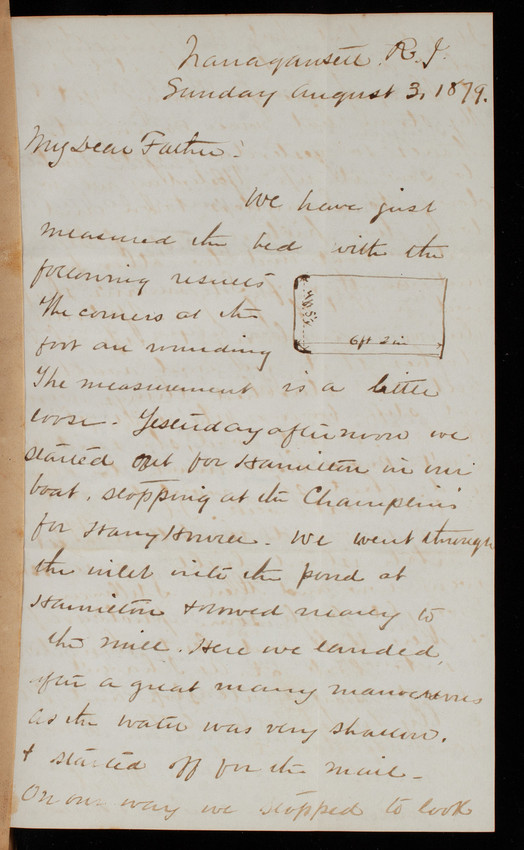 Narragansett. R. I.
Sunday August 3, 1879.
My Dear Father.
We have just
measured the bed with the
following results
The corners at the
foot are rounding
6 ft 2 in
The measurement is a little
loose. Yesterday afternoon we
started out for Hamilton in our
boat, stopping at the Champlin's
for Harry. We went through
the inlet into the pond at
Hamilton & rowed nearly to
the mill. Here we landed,
after a great many manoeuvres
as the water was very shallow.
& started off for the mail -
On our way we stopped to look